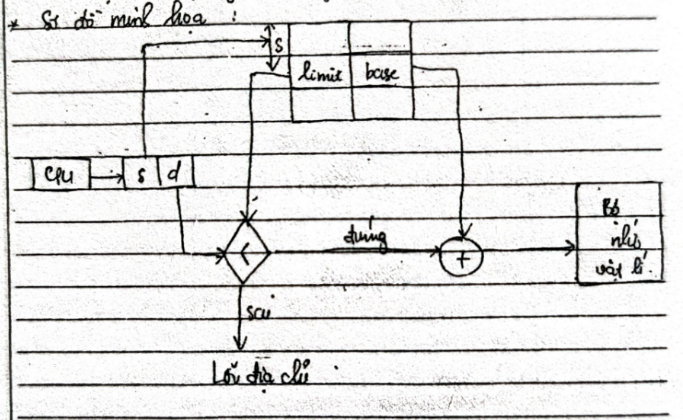 * Sơ đồ minh họa :
s
limit base
CPU s d
<
đúng
+
Bộ
nhớ
vật lí
sai
Lỗi địa chỉ